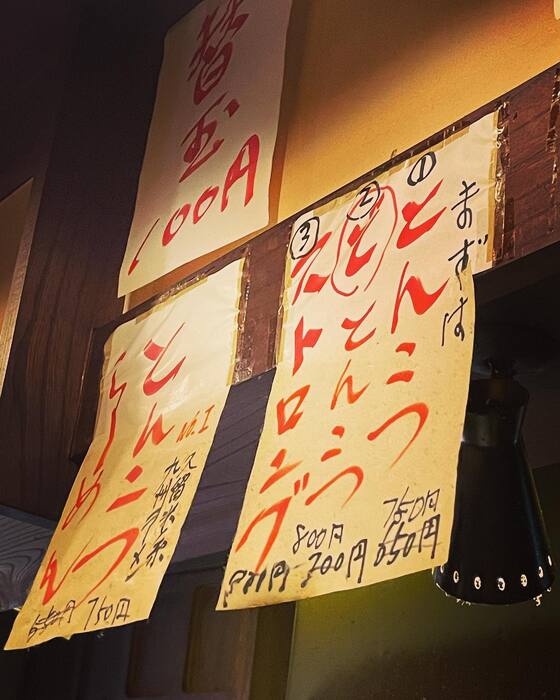 替玉
100円
まずは
①とんこつ
750円
650円
②ととんこつ
800円
700円
③ストロング
とんこつ
No.1
久留米系
九州ラーメン
らーめん
650円
750円